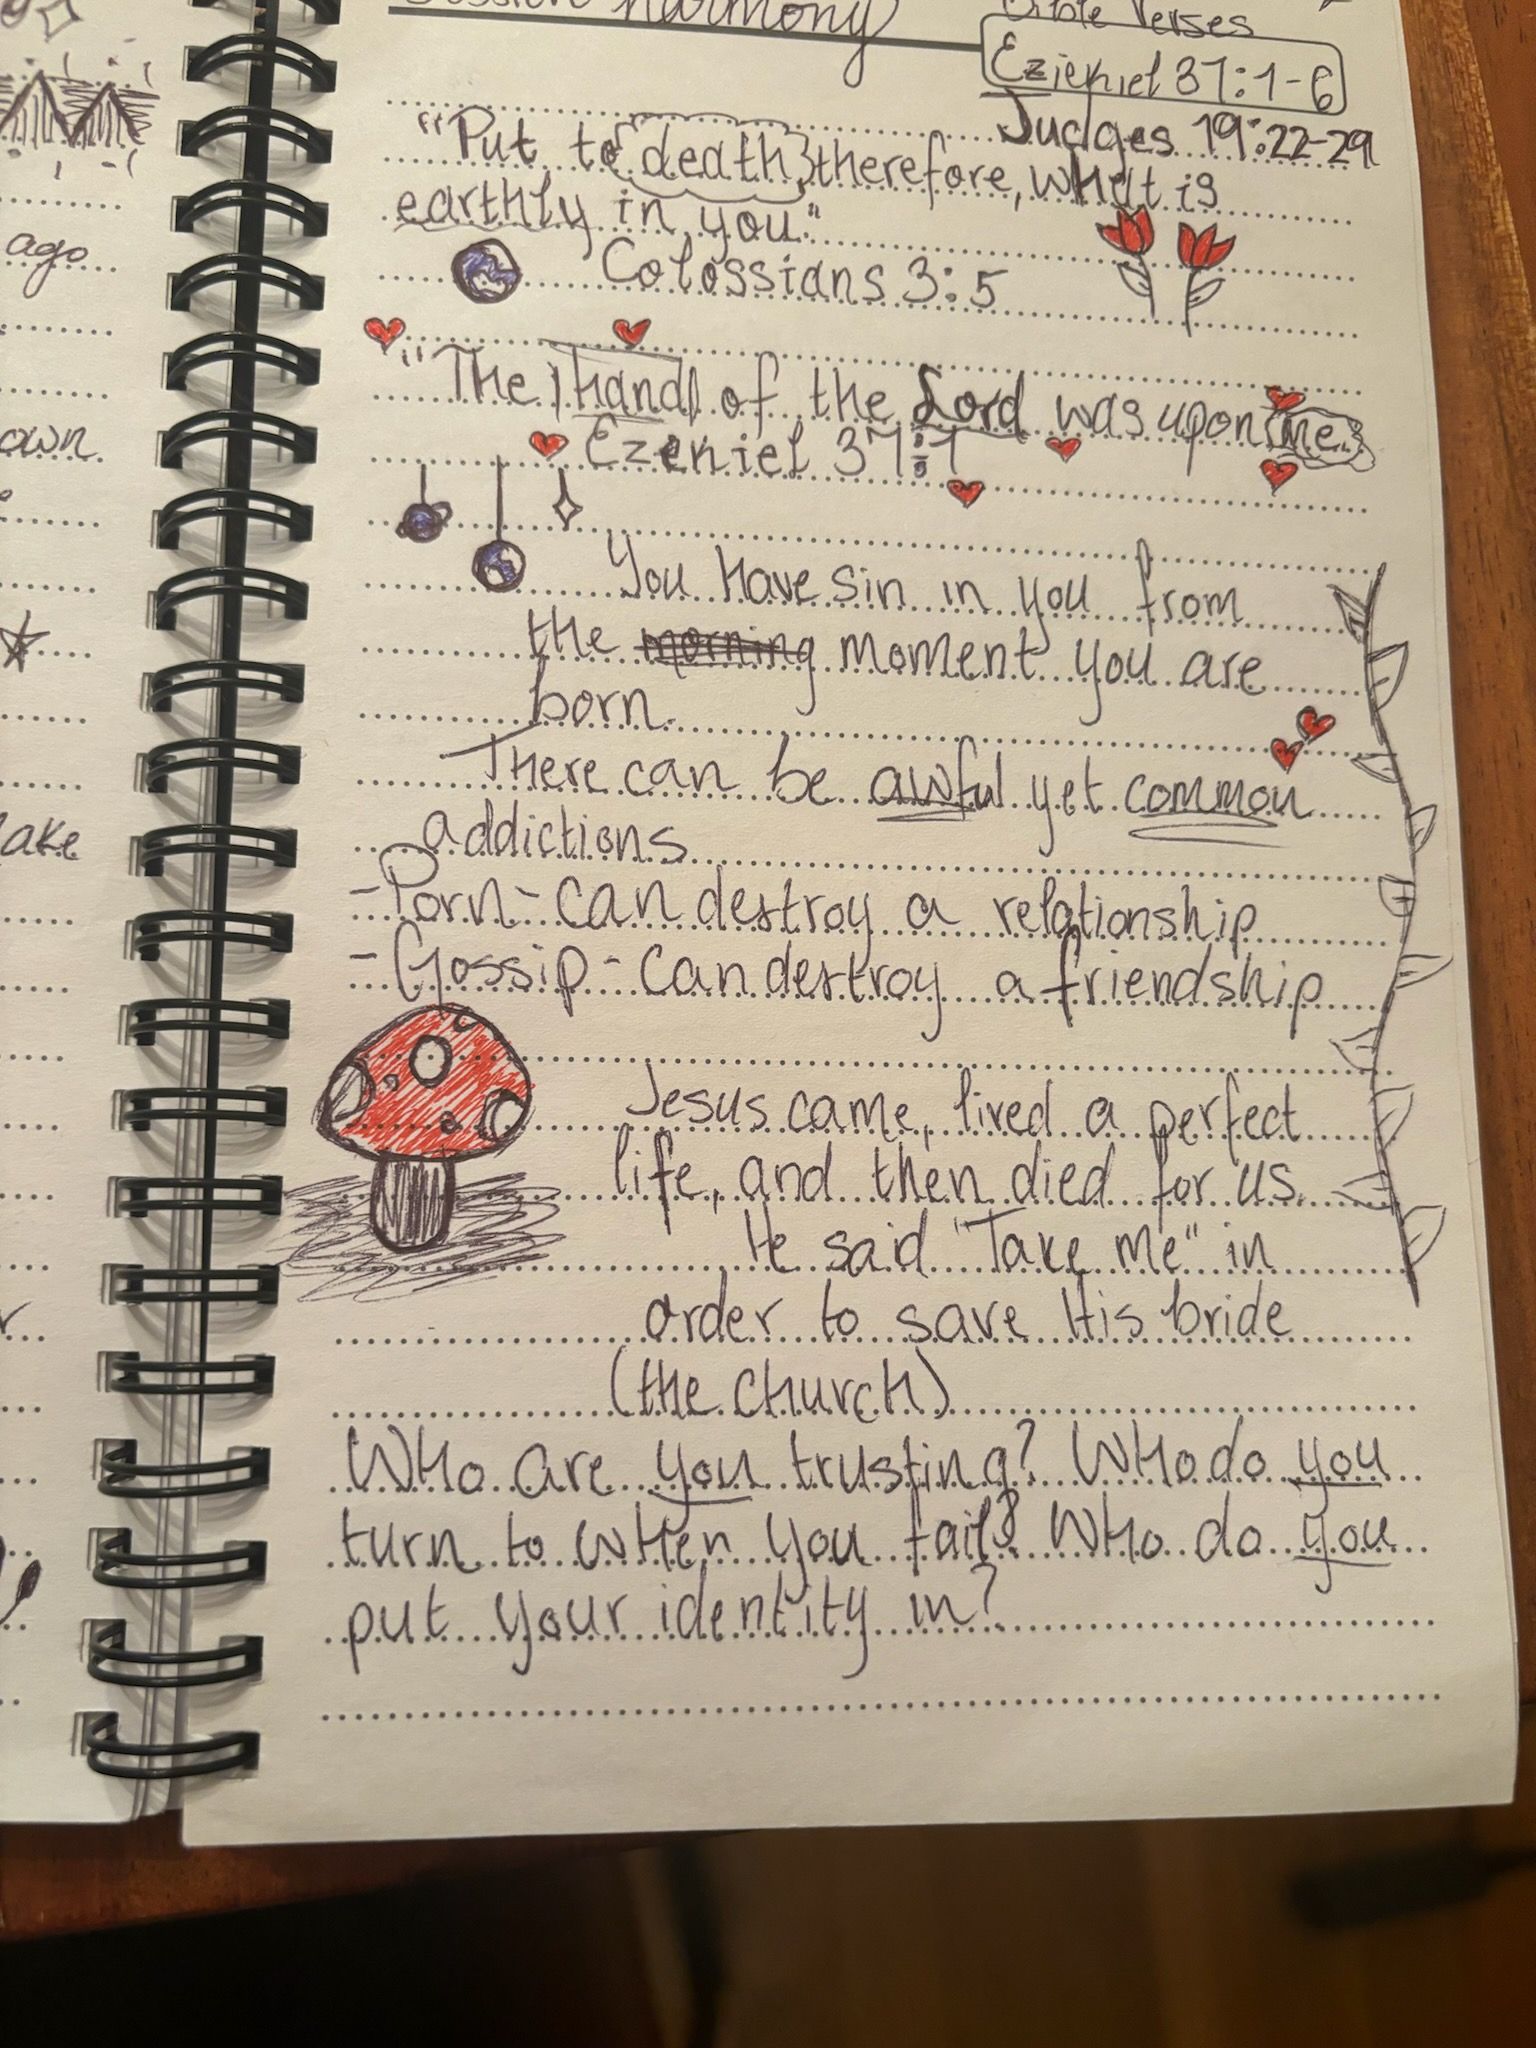 Harmony
Bible Verses
Ezekiel 37:1-6
Judges 19:22-29
"Put to death, therefore, what is
earthly in you."
Colossians 3:5
"The hand of the Lord was upon me.
Ezekiel 37:1
You have sin in you from
the morning moment you are
born.
There can be awful yet common
addictions
-Porn-can destroy a relationship
-Gossip-can destroy a friendship
Jesus came, lived a perfect
life, and then died for us.
He said "Take me" in
order to save His bride
(the church)
Who are you trusting? Who do you
turn to when you fail? Who do you
put your identity in?
ago
own.